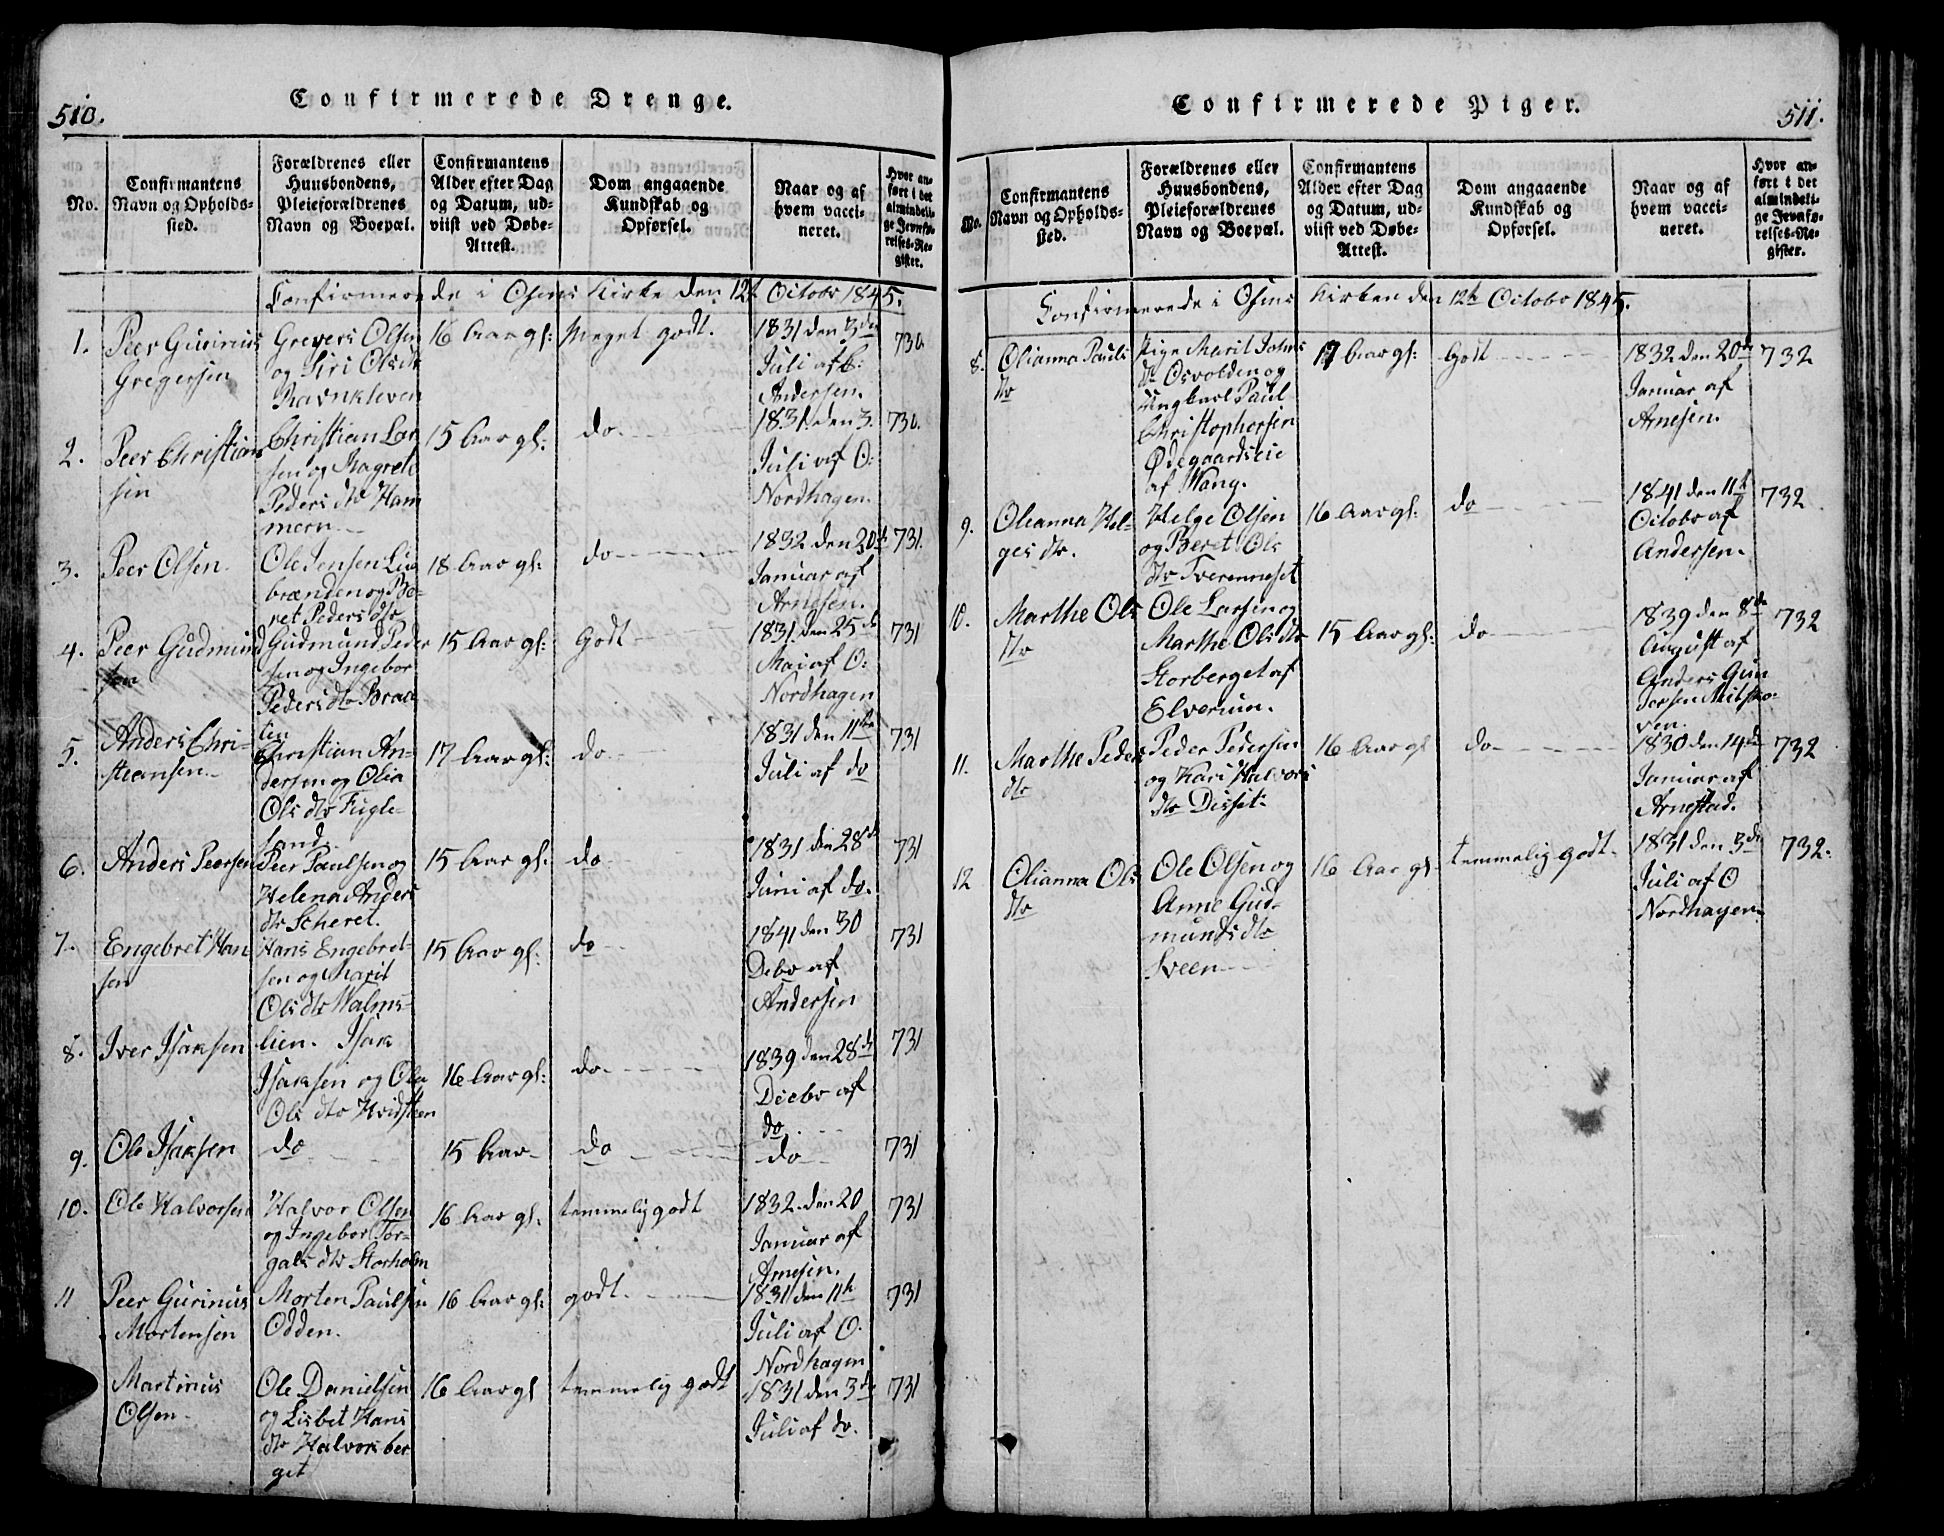 510.
Confirmerede Drenge.
No.
Confirmantens Navn og Opholdssted.
Forældrenes eller Huusbondens, Pleieforældrenes Navn og Boepæl.
Confirmantens Alder efter Dag og Datum, udviist ved Døbe-Attest.
Dom angaaende Kundskab og Opførsel.
Naar og af hvem vaccineret.
Hvor anført i det almindelige Jevnførelses-Register.
Confirmerede i Osens Kirke den 12t Octobr 1845.
1. Peer Gurinius Gregersen
Grevers Olsen og Siri Olsdtr Ravnkleven
16 Aar gl:
Meget godt.
1831 den 3die Juli af E: Andersen.
730.
2. Peer Christiansen
Christian Larsen og Magrete Pedersdtr Hammern
15 Aar gl:
do.
1831. den 3. Juli af O: Nordhagen.
730.
3. Peer Olsen
Ole Jensen Liebrænden og Beret Pedersdtr
18 Aar gl:
do
1832 den 20de Januar af Arnesen.
731.
4. Peer Gudmundsen
Gudmund Pedersen og Ingebor Pedersdtr Braalien
15 Aar gl:
Godt
1831. den 25de Mai af O: Nordhagen
731
5. Anders Christiansen
Christian Andersen og Olia Olsdtr Fuglesand
17 Aar gl:
do.
1831 den 11te Juli af do
731
6. Anders Peersen
Peer Paulsen og Helena Andersdtr Scheret.
15 Aar gl:
do
1831 den 28de Juni af do.
731
7. Engebret Hansen
Hans Engebretsen og Marit Olsdtr Valmslien.
15 Aar gl:
do
1841 den 30 Debr af Andersen
731
8. Iver Isaksen
Isak Isaksen og Olea Olsdtr Hvidsteen
16 Aar gl:
do
1839 den 28de Decbr af do
731
9. Ole Isaksen
do
15 Aar
do
do
731
10. Ole Halvorsen
Halvor Olsen og Ingebor Torgalsdtr Storholm
16 Aar gl.
temmelig godt
1832. den 20 Januar af Arnesen.
731
11 Peer Gurinus Mortensen
Morten Paulsen Odden.
16 Aar gl:
godt.
1831 den 11te Juli af O. Nordhagen
731
Martinus Olsen
Ole Danielsen og Lisbet Hansdtr Halvorsberget
16 Aar gl
temmelig godt
1831 den 3die Juli af do.
731
511.
Confirmerede Piger.
No.
Confirmantens Navn og Opholdssted.
Forældrenes eller Huusbondens, Pleieforældrenes Navn og Boepæl.
Confirmantens Alder efter Dag og Datum, udviist ved Døbe-Attest.
Dom angaaende Kundskab og Opførsel.
Naar og af hvem vaccineret.
Hvor anført i det almindelige Jevnførelses-Register.
Confirmerede i Osens Kirken den 12te Octobr 1845.
8. Olianna Paulsdtr
Pige Marit Johnsdtr Osvolden og Ungkarl Paul Christophersen Ødegaardseie af Wang.
17 Aar gl:
Godt
1832 den 20de Januar af Arnesen.
732
9. Oleanna Helgesdtr.
Helge Olsen og Beret Olsdtr Tverenneset
16 Aar gl:
do
1841 den 11te Octobr af Andersen.
732
10. Marthe Olsdtr
Ole Larsen og Marthe Olsdtr Storberget af Elverum.
15 Aar gl:
do
1839 den 8de August af Anders
732
11. Marthe Pedersdtr
Peder Pedersen og Kari Halvorsdtr Disset:
16 Aar gl
do
1830 den 14de Januar af Arnestad.
732
12 Olianna Olsdtr
Ole Olsen og Anne Gudmundsdtr Sveen
16 Aar gl
temmelig godt.
1831 den 3die Juli af O Nordhagen
732.